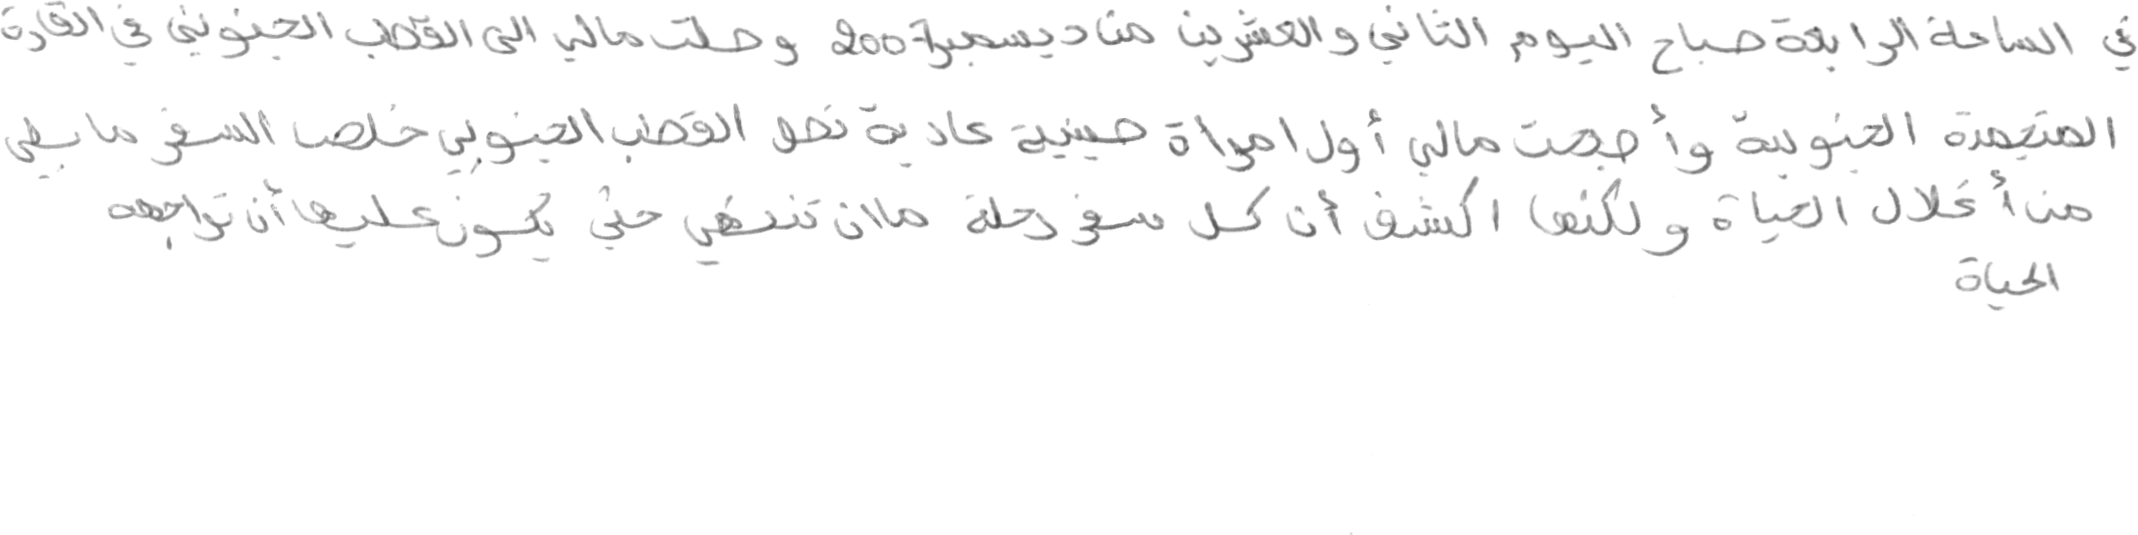 في الساعة الرابعة صباح اليوم الثاني والعشرين من ديسمبر 2007 وصلت مالي الى القطب الجنوبي في القارة
المتجمدة الجنوبية وأصبحت مالي أول امرأة صينية عادية نحو القطب الجنوبي خلصا السفر ما بطي
من أغلال الحياة ولكنها اكشف أن كل سفر رحلة ما ان تنتهي حتى يكون عليها أن تواجهه
الحياة